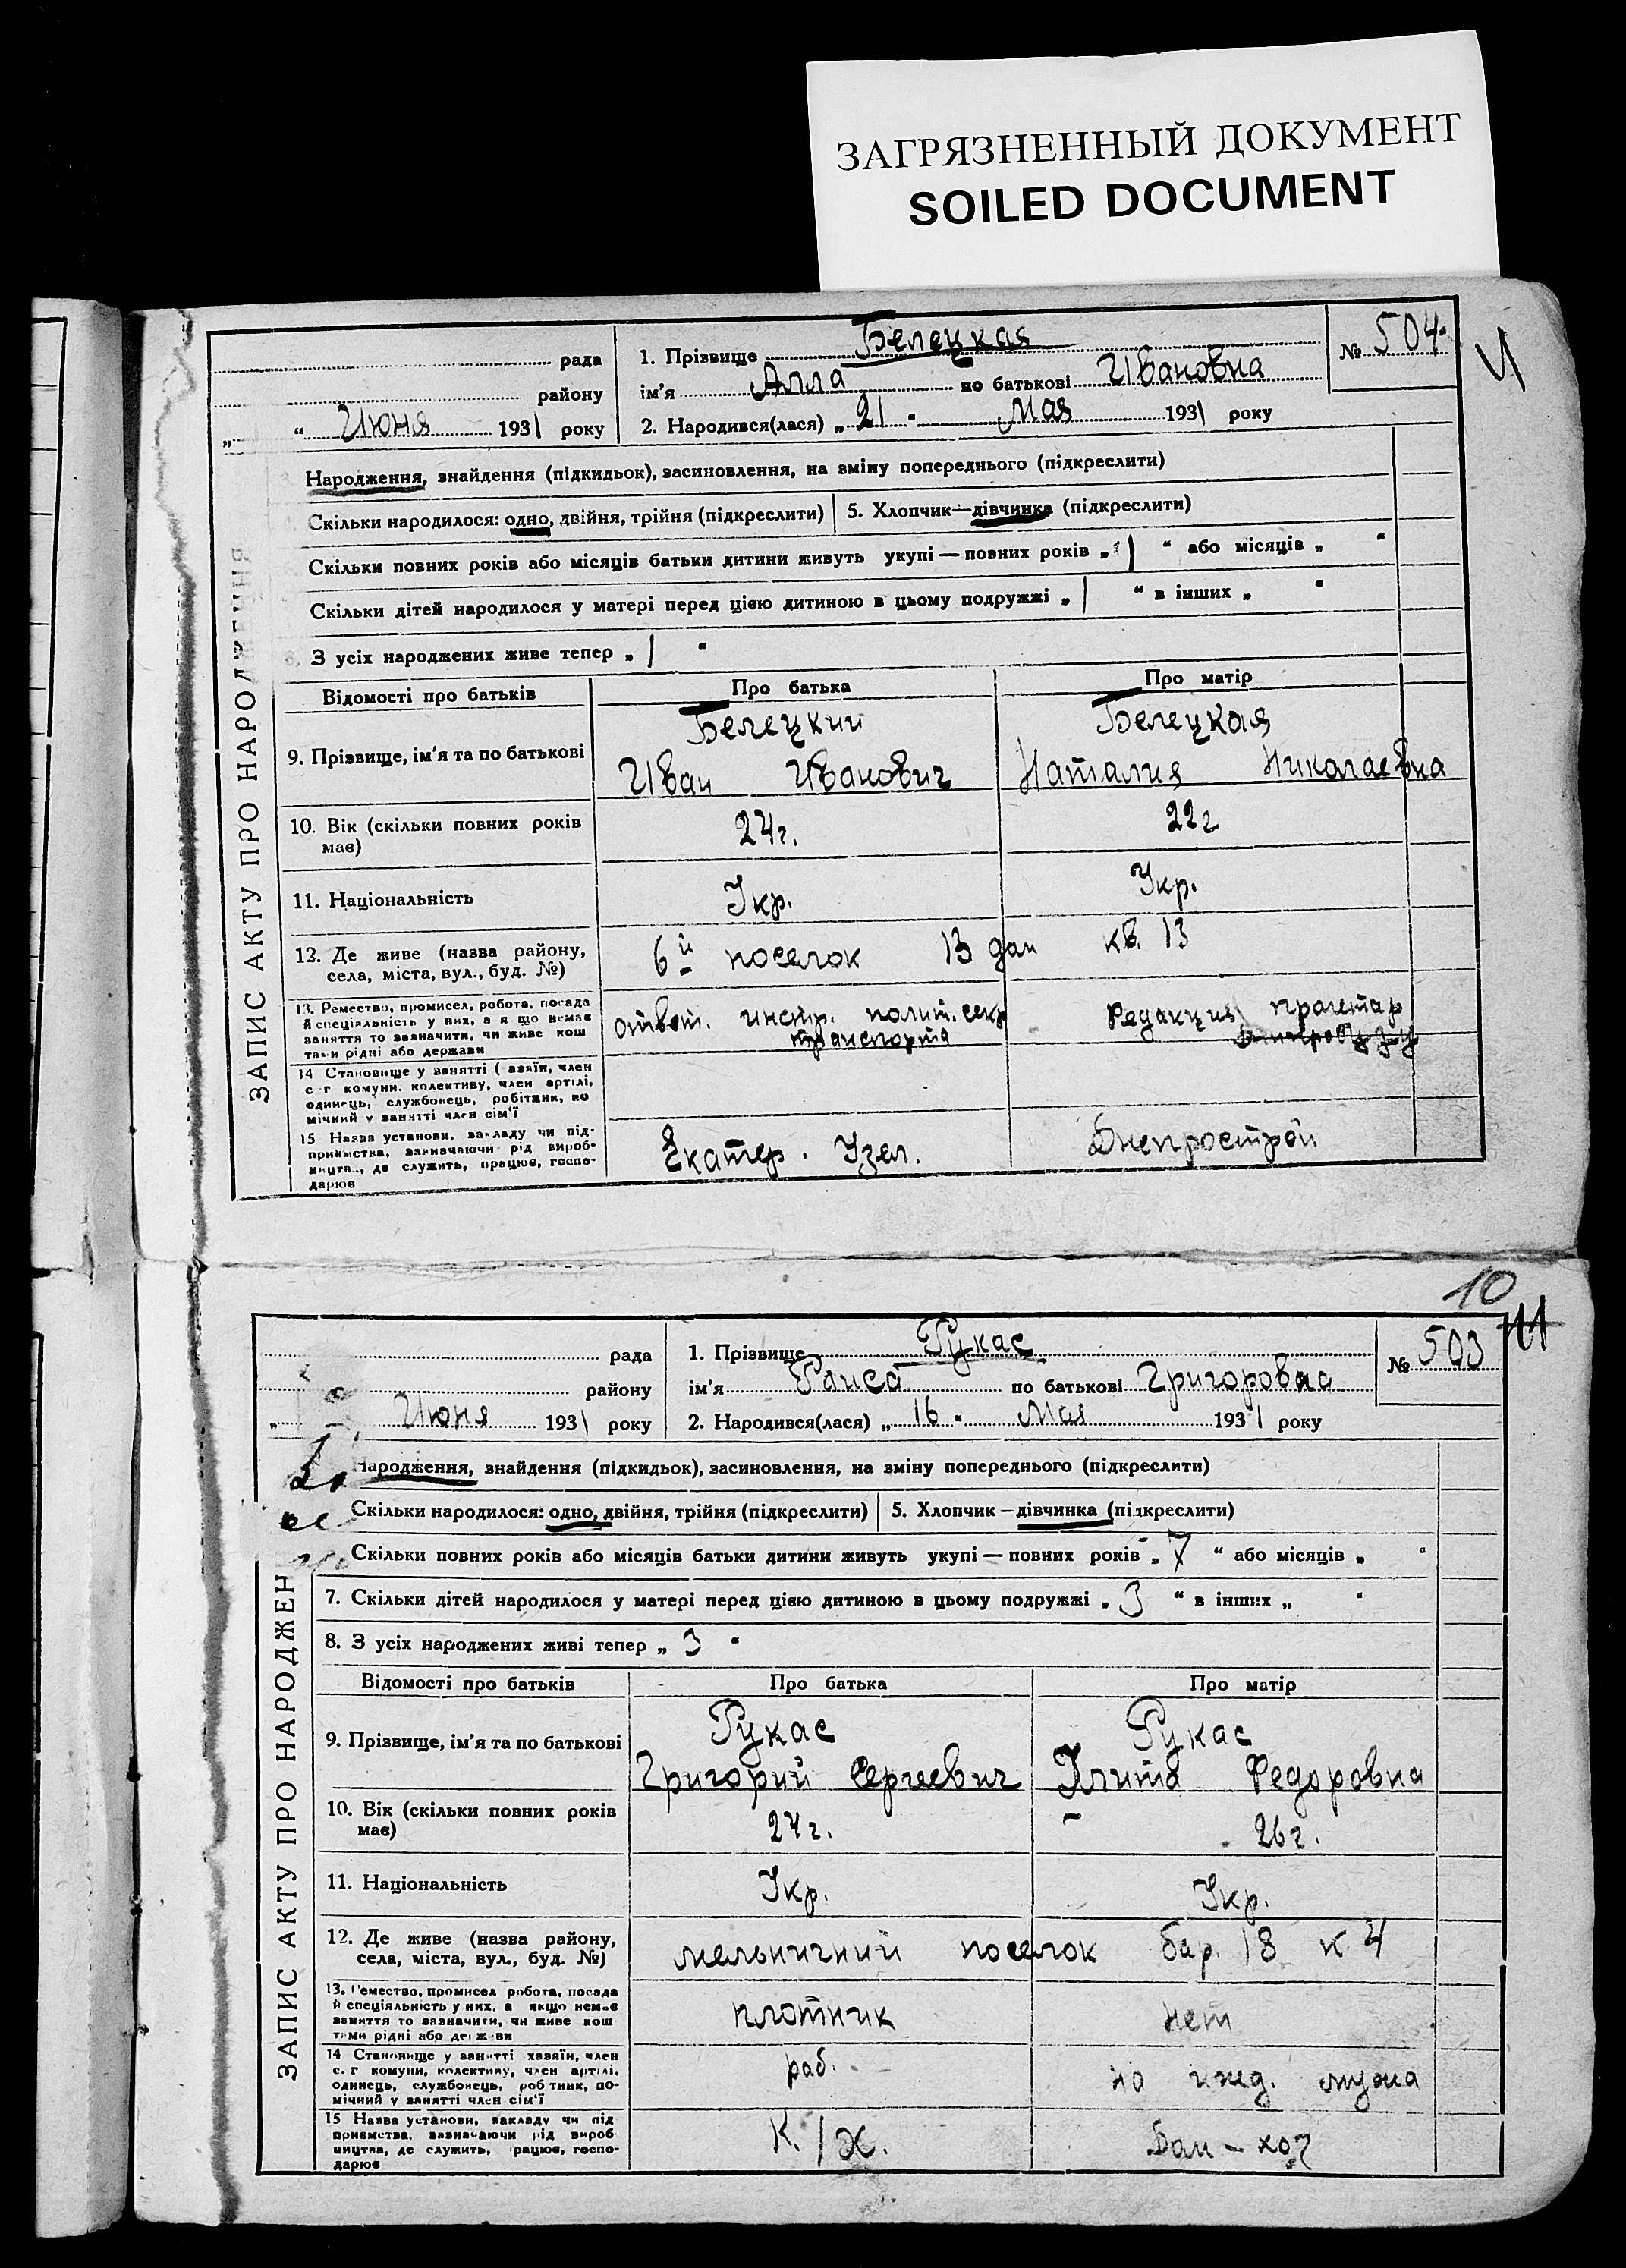 ЗАГРЯЗНЕННЫЙ ДОКУМЕНТ
SOILED DOCUMENT
ЗАПИС АКТУ ПРО НАРОДЖЕННЯ
рада
району
„ “ Июня 1931 року
1. Прізвище Белецкая
ім'я Алла по батькові Ивановна
2. Народився(лася) „ 21 “ Мая 1931 року
№ 504
Народження, знайдення (підкидьок), засиновлення, на зміну попереднього (підкреслити)
Скільки народилося: одно, двійня, трійня (підкреслити) 5. Хлопчик—дівчинка (підкреслити)
Скільки повних років або місяців батьки дитини живуть укупі — повних років „ 1 “ або місяців „ “
Скільки дітей народилося у матері перед цією дитиною в цьому подружжі „ 1 “ в інших „ “
8. З усіх народжених живе тепер „ 1 “
Відомості про батьків Про батька Про матір
9. Прізвище, ім'я та по батькові Белецкий Иван Иванович Белецкая Наталия Николаевна
10. Вік (скільки повних років має) 24г. 22г
11. Національність Укр. Укр.
12. Де живе (назва району, села, міста, вул., буд. №) 6й поселок 13 дом кв. 13
13. Ремество, промисел, робота, посада й спеціяльність у них, а я що немає заняття то зазначити, чи живе кош тами рідні або держави
ответ. инстр. полит. секр транспорта
Редакция пролетар
14 Становище у занятті ( азяїн, член с г комуни, колективу, член артілі, одинець, службовець, робітник, помічний у занятті член сім'ї
15 Назва установи, закладу чи підприємства, зазначаючи рід виробництва, де служить, працює, господарює
Екатер. Узел. Днепрострой
10
11
ЗАПИС АКТУ ПРО НАРОДЖЕН
рада
району
„ Июня 1931 року
1. Прізвище Рукас
ім'я Раиса по батькові Григоровна
2. Народився(лася) „ 16 “ Мая 1931 року
№ 503
Народження, знайдення (підкидьок), засиновлення, на зміну попереднього (підкреслити)
Скільки народилося: одно, двійня, трійня (підкреслити) 5. Хлопчик — дівчинка (підкреслити)
Скільки повних років або місяців батьки дитини живуть укупі — повних років „ 7 “ або місяців „ “
7. Скільки дітей народилося у матері перед цією дитиною в цьому подружжі „ 3 “ в інших „ “
8. З усіх народжених живі тепер „ 3 “
Відомості про батьків Про батька Про матір
9. Прізвище, ім'я та по батькові Рукас Григорий Сергеевич Рукас Федоровна
10. Вік (скільки повних років має) 24г. 26г.
11. Національність Укр. Укр.
12. Де живе (назва району, села, міста, вул., буд. №) мельничний поселок бар. 18 к 4
13. Ремество, промисел робота, посада й спеціяльність у них, а якщо немає заняття то зазначити, чи живе кош тами рідні або держави
плотник нет
14 Становище у занятті хазяїн, член с. г комуни, колективу, член артілі, одинець, службовець, робітник, помічний у занятті член сім'ї
раб. на ижд. мужа
15 Назва установи, закладу чи під приємства, зазначаючи рід вироб ництва, де служить, працює, господарює
К. / Х. Дом-хоз